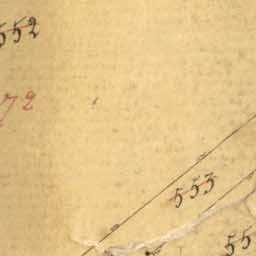 552
72
553
55